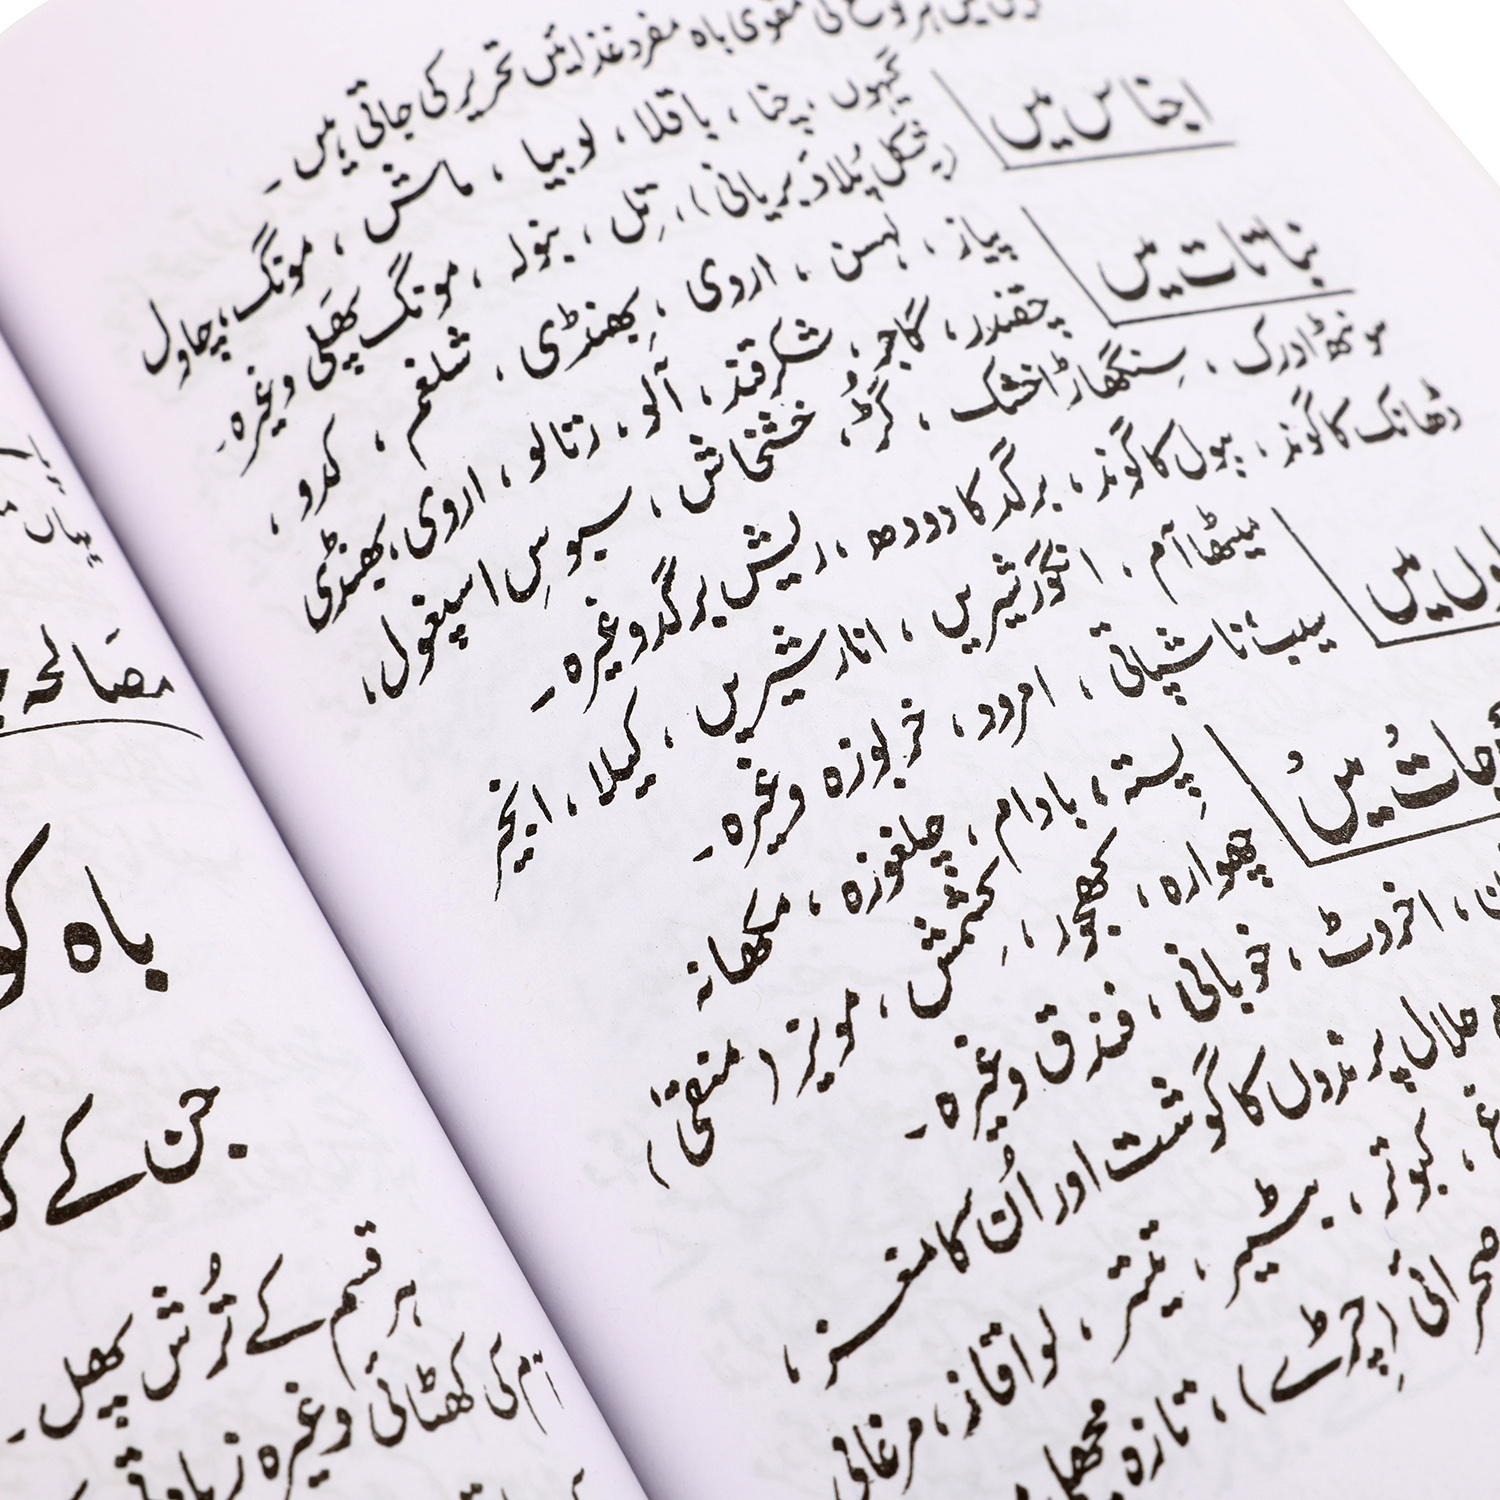 مقوی باہ مفرد غذائیں تحریر کی جاتی ہیں۔
اجناس میں
گیہوں، چنا، باقلا، لوبیا، ماش، مونگ، چاول
(بشکل پلاؤ بریانی)، تِل، بنولہ، مونگ پھلی وغیرہ۔
نباتات میں
پیاز، لہسن، اروی، بھِنڈی، شلغم، کدو،
چقندر، گاجر، شکرقند، آلو، رتالو، اروی، بھنڈی
سونٹھ ادرک، سِنگھاڑا خشک، گُڑ، خشخاش، سبوسِ اسپغول،
ڈھانک کا گوند، ببول کا گوند، برگد کا دودھ، ریش برگد وغیرہ۔
میں
میٹھا آم، انگور شیریں، انار شیریں، کیلا، انجیر
سیب، ناشپاتی، امرود، خربوزہ وغیرہ۔
میں
پِستہ، بادام، چلغوزہ، مکھانہ
چھوارہ، کھجور، کشمش، مویز (منقیٰ)
اخروٹ، خوبانی، فندق وغیرہ۔
حلال پرندوں کا گوشت اور اُن کا مغز،
کبوتر، بٹیر، تیتر، لوا، قاز، مرغابی
صحرائی (چڑے)، تازہ مچھلی
مصَالحہ
باہ کو
جن کے
ہر قسم کے تُرش پھل۔
آم کی کھٹائی وغیرہ